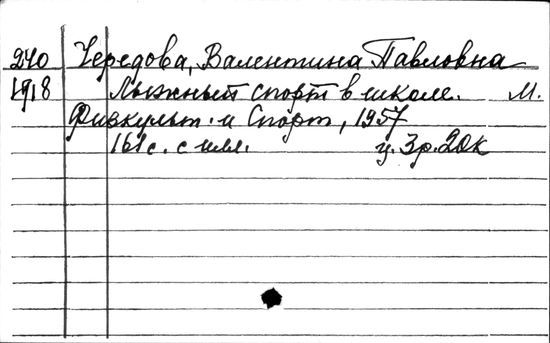 240 Чередова, Валентина Павловна
1918 Лыжный спорт в школе. М.
Физкульт. и Спорт, 1957
161 с. с илл. ц. 3р. 20к